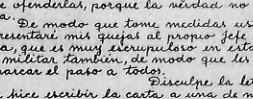 e ofenderlas, porque la verdad no
a.
De modo que tome medidas us
resentaré mis quejas al propio Jefe
a, que es muy escrupuloso en esta
militar también, de modo que les
marcar el paso a todos.
Disculpe la le
hice escribir la carta a una de m